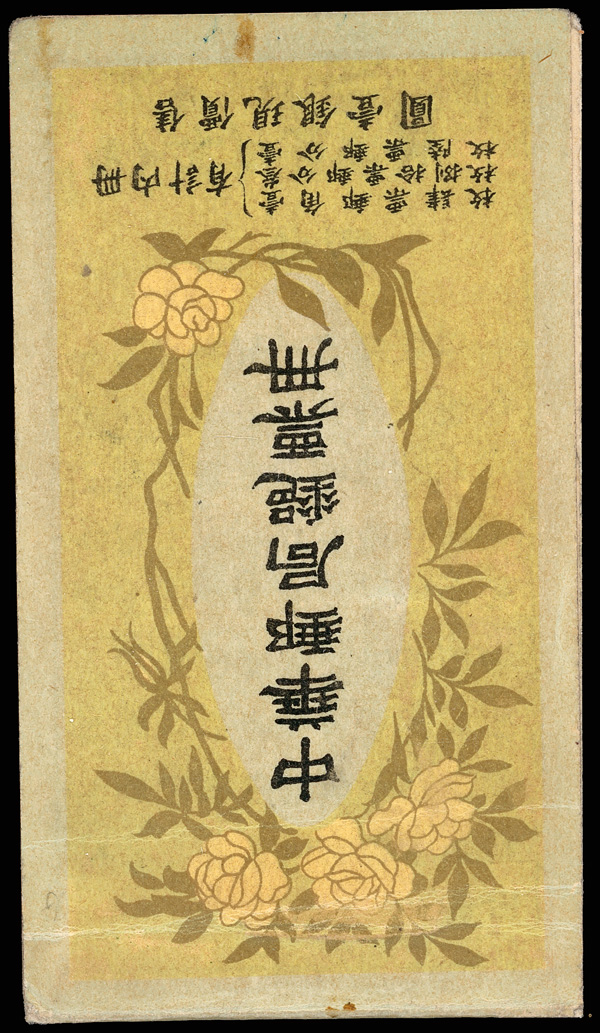 中華郵局票冊
冊內計有
壹角郵票肆枚
叁分郵票拾捌枚
壹分郵票陸枚
售價現銀壹圓